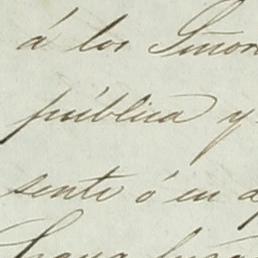 á los Señor
pública y
sente ó en a